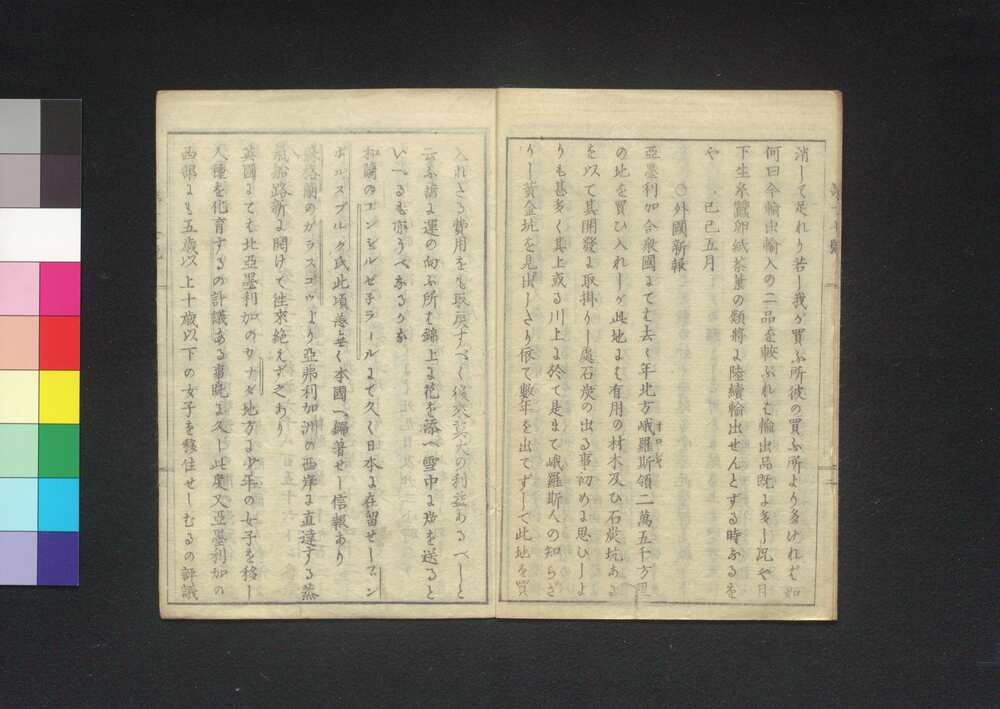 消して足れり若し我が買ふ所彼の買ふ所より多けれども如
何曰今輸出輸入の二品を較ぶれも輸出品既よ多し況や目
下生糸蠶卵紙茶葉の類將よ陸續輸出せんとする時ふるを
や 己巳五月
○外國新報
亞墨利加合衆國よても去く年北方峨羅斯領二萬五千方里
オロシヤ
の地を買ひ入れしが此地よも有用の材木及ひ石炭坑ある
を以て其開發よ取掛りし處石炭の出る事初めよ思ひしよ
りも甚多く其上或る川上よ於て是まて峨羅斯人の知らざ
りし黄金坑を見出したり依て數年を出でずして此地を買
入れたる費用をも取戻すべく後來莫大の利益あるべしと
云ふ諺よ運の向ふ所も錦上よ花を添へ雪中よ炭を送ると
いへるも亦うべなるかな
和蘭のコンシュルゼネラールまて久く日本よ在留せしファン
ボルスブルク氏此頃恙無く本國へ歸著せし信報あり
蘇格蘭のガラスゴウより亞弗利加洲の西岸よ直達する蒸
氣船路新よ開けて往來絶えず之あり
英國よても北亞墨利加のカナダ地方よ少年の女子を移し
人種を化育するの計議ある事既よ久し此度又亞墨利加の
西部よも五歳以上十歳以下の女子を移住せしむるの評議